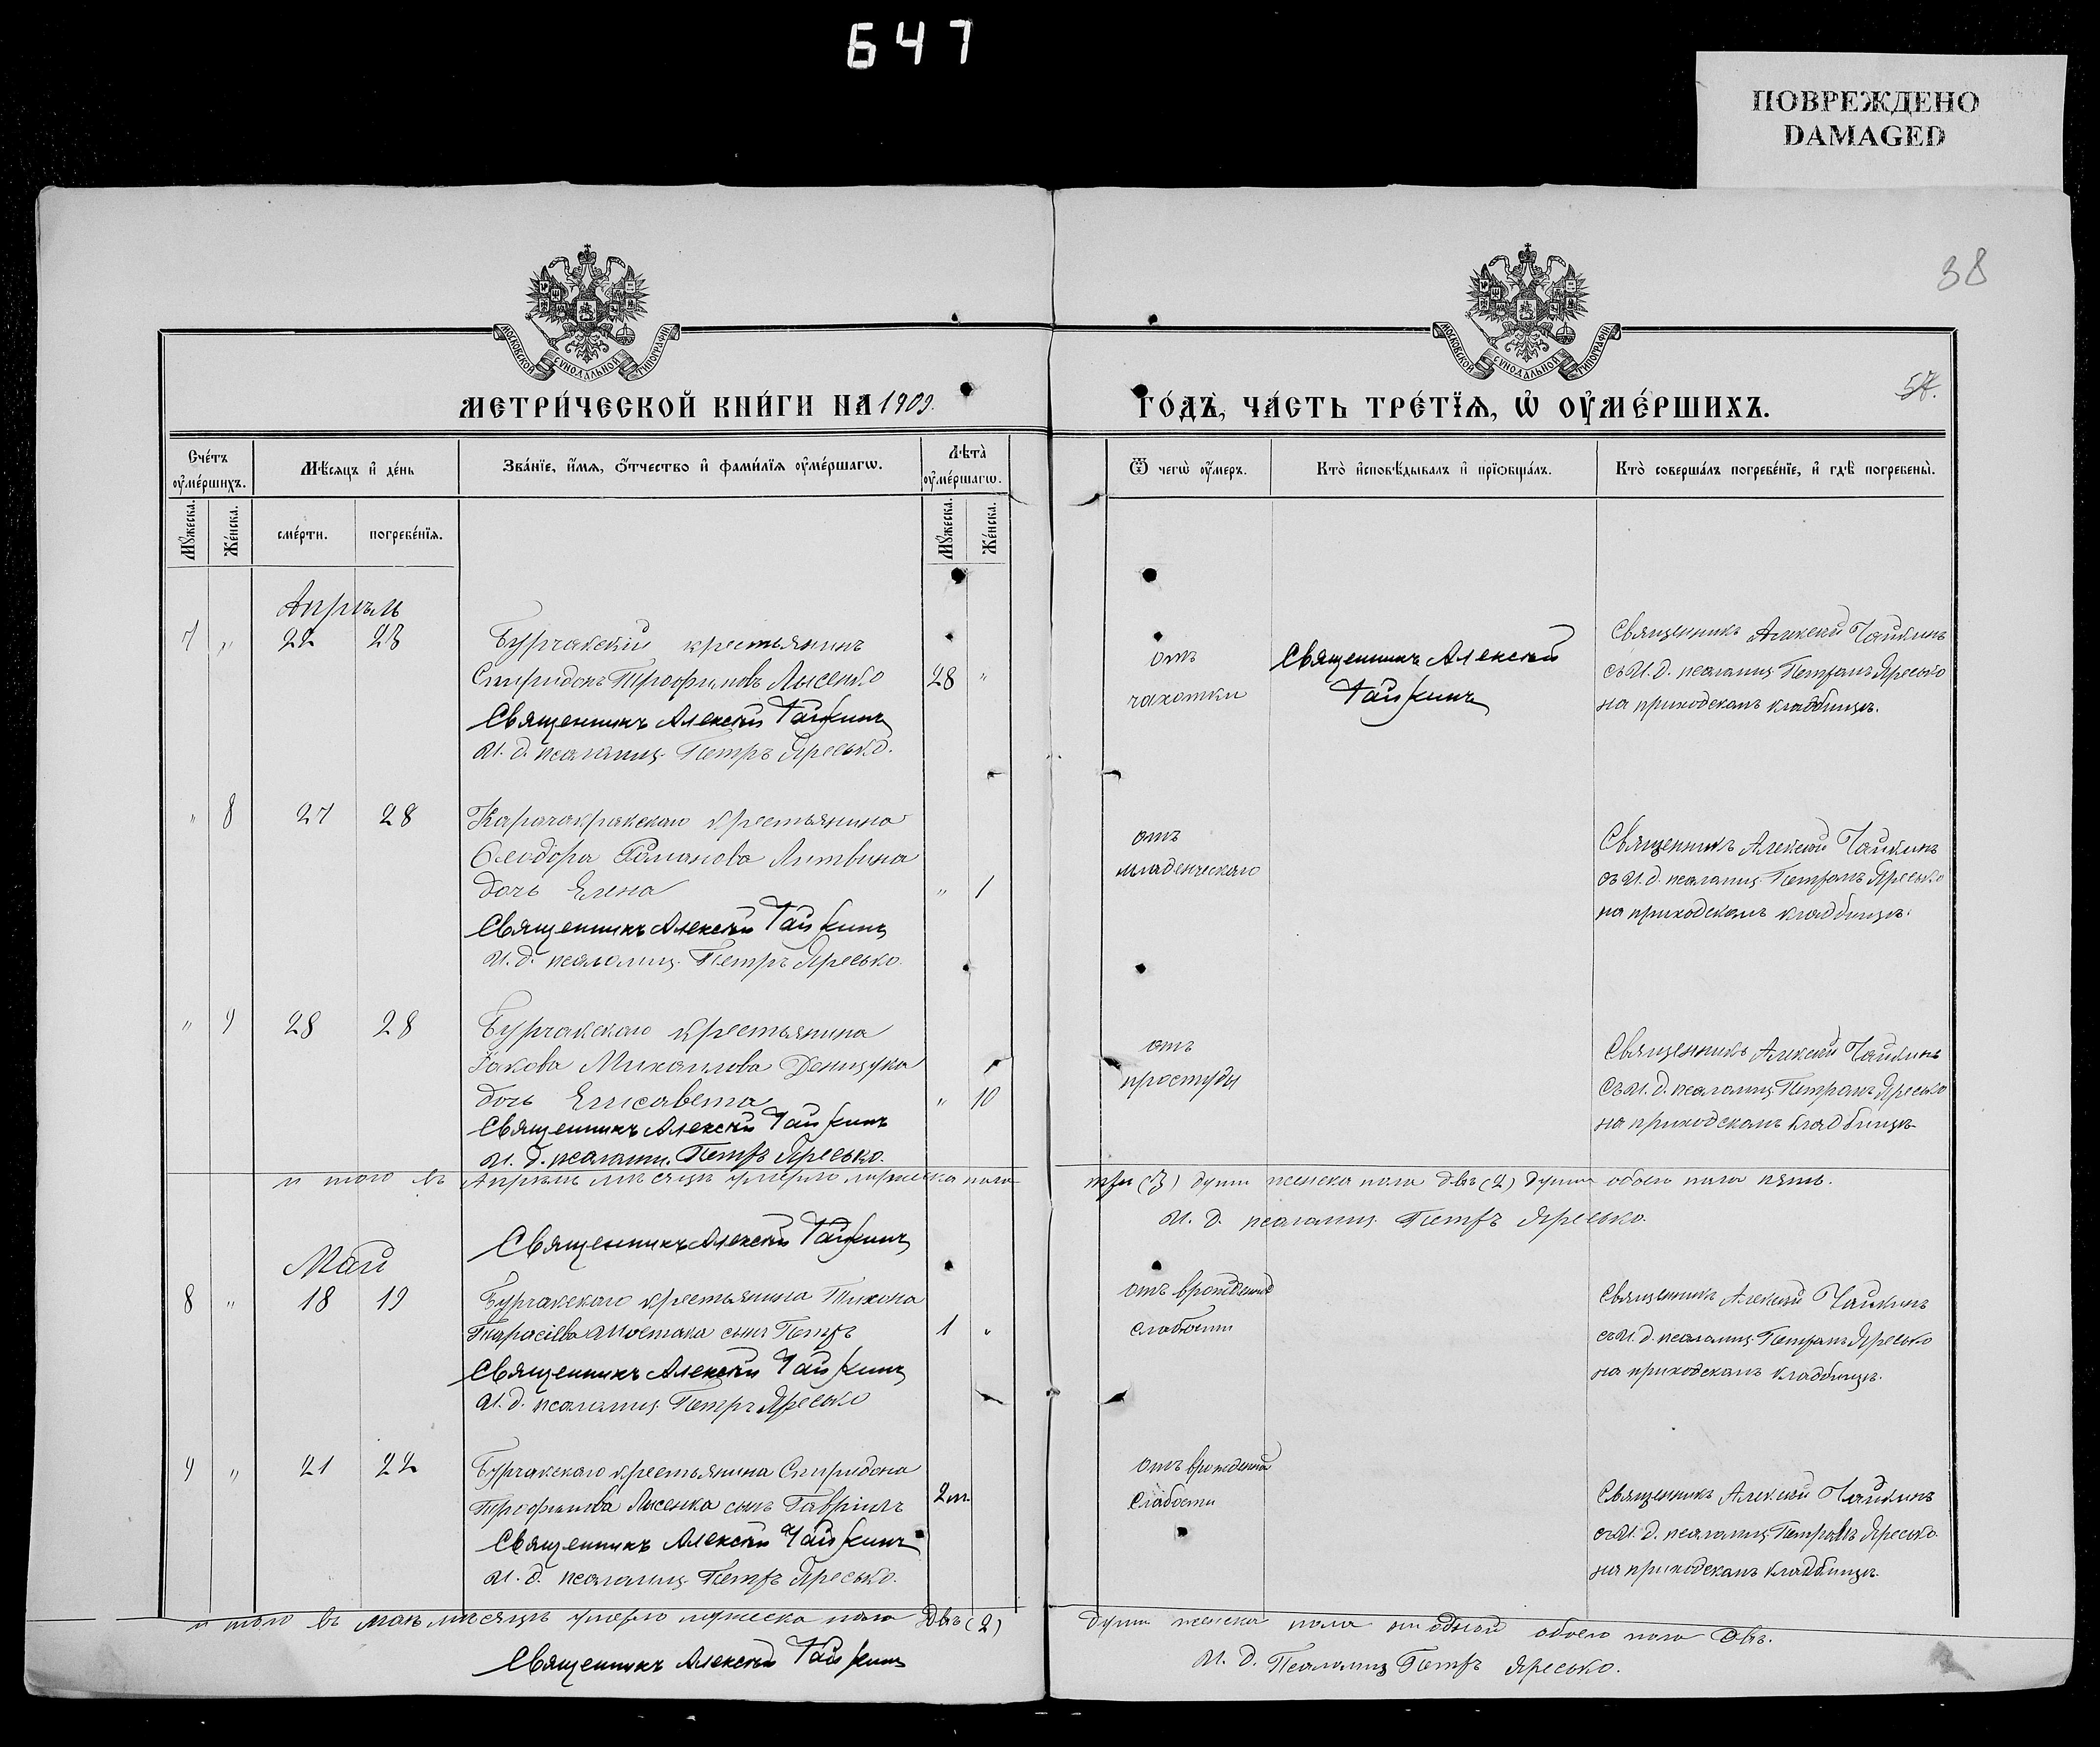 647
ПОВРЕЖДЕНО
DAMAGED
38
57.
МОСКОВСКОЙ СѴНОДАЛЬНОЙ ТИПОГРАФІИ
МОСКОВСКОЙ СѴНОДАЛЬНОЙ ТИПОГРАФІИ
МЕТРИ́ЧЕСКОЙ КНИ́ГИ НА 1909. ГО́ДЪ, ЧА́СТЬ ТРЕ́ТІѦ, Ѡ҆ ОУ҆МЕ́РШИХЪ.
Сче́тъ оу҆ме́ршихъ.
Мѣ́сяцъ и҆ де́нь
Зва́нїе, и҆́мѧ, ѻ҆́тчество и҆ фами́лїѧ оу҆ме́ршагѡ.
Лѣта̀ оу҆ме́ршагѡ.
Ѿ чегѡ̀ оу҆́меръ.
Кто̀ и҆сповѣ́дывалъ и҆ прїѡбща́лъ.
Кто̀ соверша́лъ погребе́нїе, и҆ гдѣ̀ погребены̀.
Мꙋ́жеска. Же́нска. сме́рти. погребе́нїѧ. Мꙋ́жеска. Же́нска.
Апрѣль
7 " 22 23 Бурчакскій крестьянинъ
Спиридонъ Трофимовъ Лысенко 28 "
Священникъ Алексѣй Чайкинъ
И. д. псаломщ. Петръ Яресько.
отъ
чахотки
Священникъ Алексѣй
Чайкинъ
Священникъ Алексѣй Чайкинъ
съ И. д. псаломщ. Петромъ Яресько
на приходскомъ кладбищѣ.
" 8 27 28 Карачакракскаго крестьянина
Ѳеодора Романова Литвина
дочь Елена " 1
Священникъ Алексѣй Чайкинъ
И. д. псаломщ. Петръ Яресько.
отъ
младенческаго
Священникъ Алексѣй Чайкинъ
съ И. д. псаломщ. Петромъ Яресько
на приходскомъ кладбищѣ.
" 9 28 28 Бурчакскаго крестьянина
Іакова Михаилова Денищука
дочь Елисавета " 10
Священникъ Алексѣй Чайкинъ
И. д. псаломщ. Петръ Яресько.
отъ
простуды
Священникъ Алексѣй Чайкинъ
съ И. д. псаломщ. Петромъ Яресько
на приходскомъ кладбищѣ
и того въ Апрѣлѣ мѣсяцѣ умерло мужеска пола три (3) души женска пола двѣ (2) души обоего пола пять.
И. д. псаломщ. Петръ Яресько.
Священникъ Алексѣй Чайкинъ
Май
8 " 18 19 Бурчакскаго крестьянина Тихона
Тарасіева Шостака сынъ Петръ 1 "
Священникъ Алексѣй Чайкинъ
И. д. псаломщ. Петръ Яресько
отъ врожденной
слабости
Священникъ Алексѣй Чайкинъ
съ И. д. псаломщ. Петромъ Яресько
на приходскомъ кладбищѣ.
9 " 21 22 Бурчакскаго крестьянина Спиридона
Трофимова Лысенка сынъ Гавріилъ 2 м.
Священникъ Алексѣй Чайкинъ
И. д. псаломщ. Петръ Яресько.
отъ врожденной
слабости
Священникъ Алексѣй Чайкинъ
съ И. д. псаломщ. Петромъ Яресько
на приходскомъ кладбищѣ
и того въ маѣ мѣсяцѣ умерло мужеска пола двѣ (2) души женска пола ни одной обоего пола двѣ.
И. д. Псаломщ Петръ Яресько.
Священникъ Алексѣй Чайкинъ